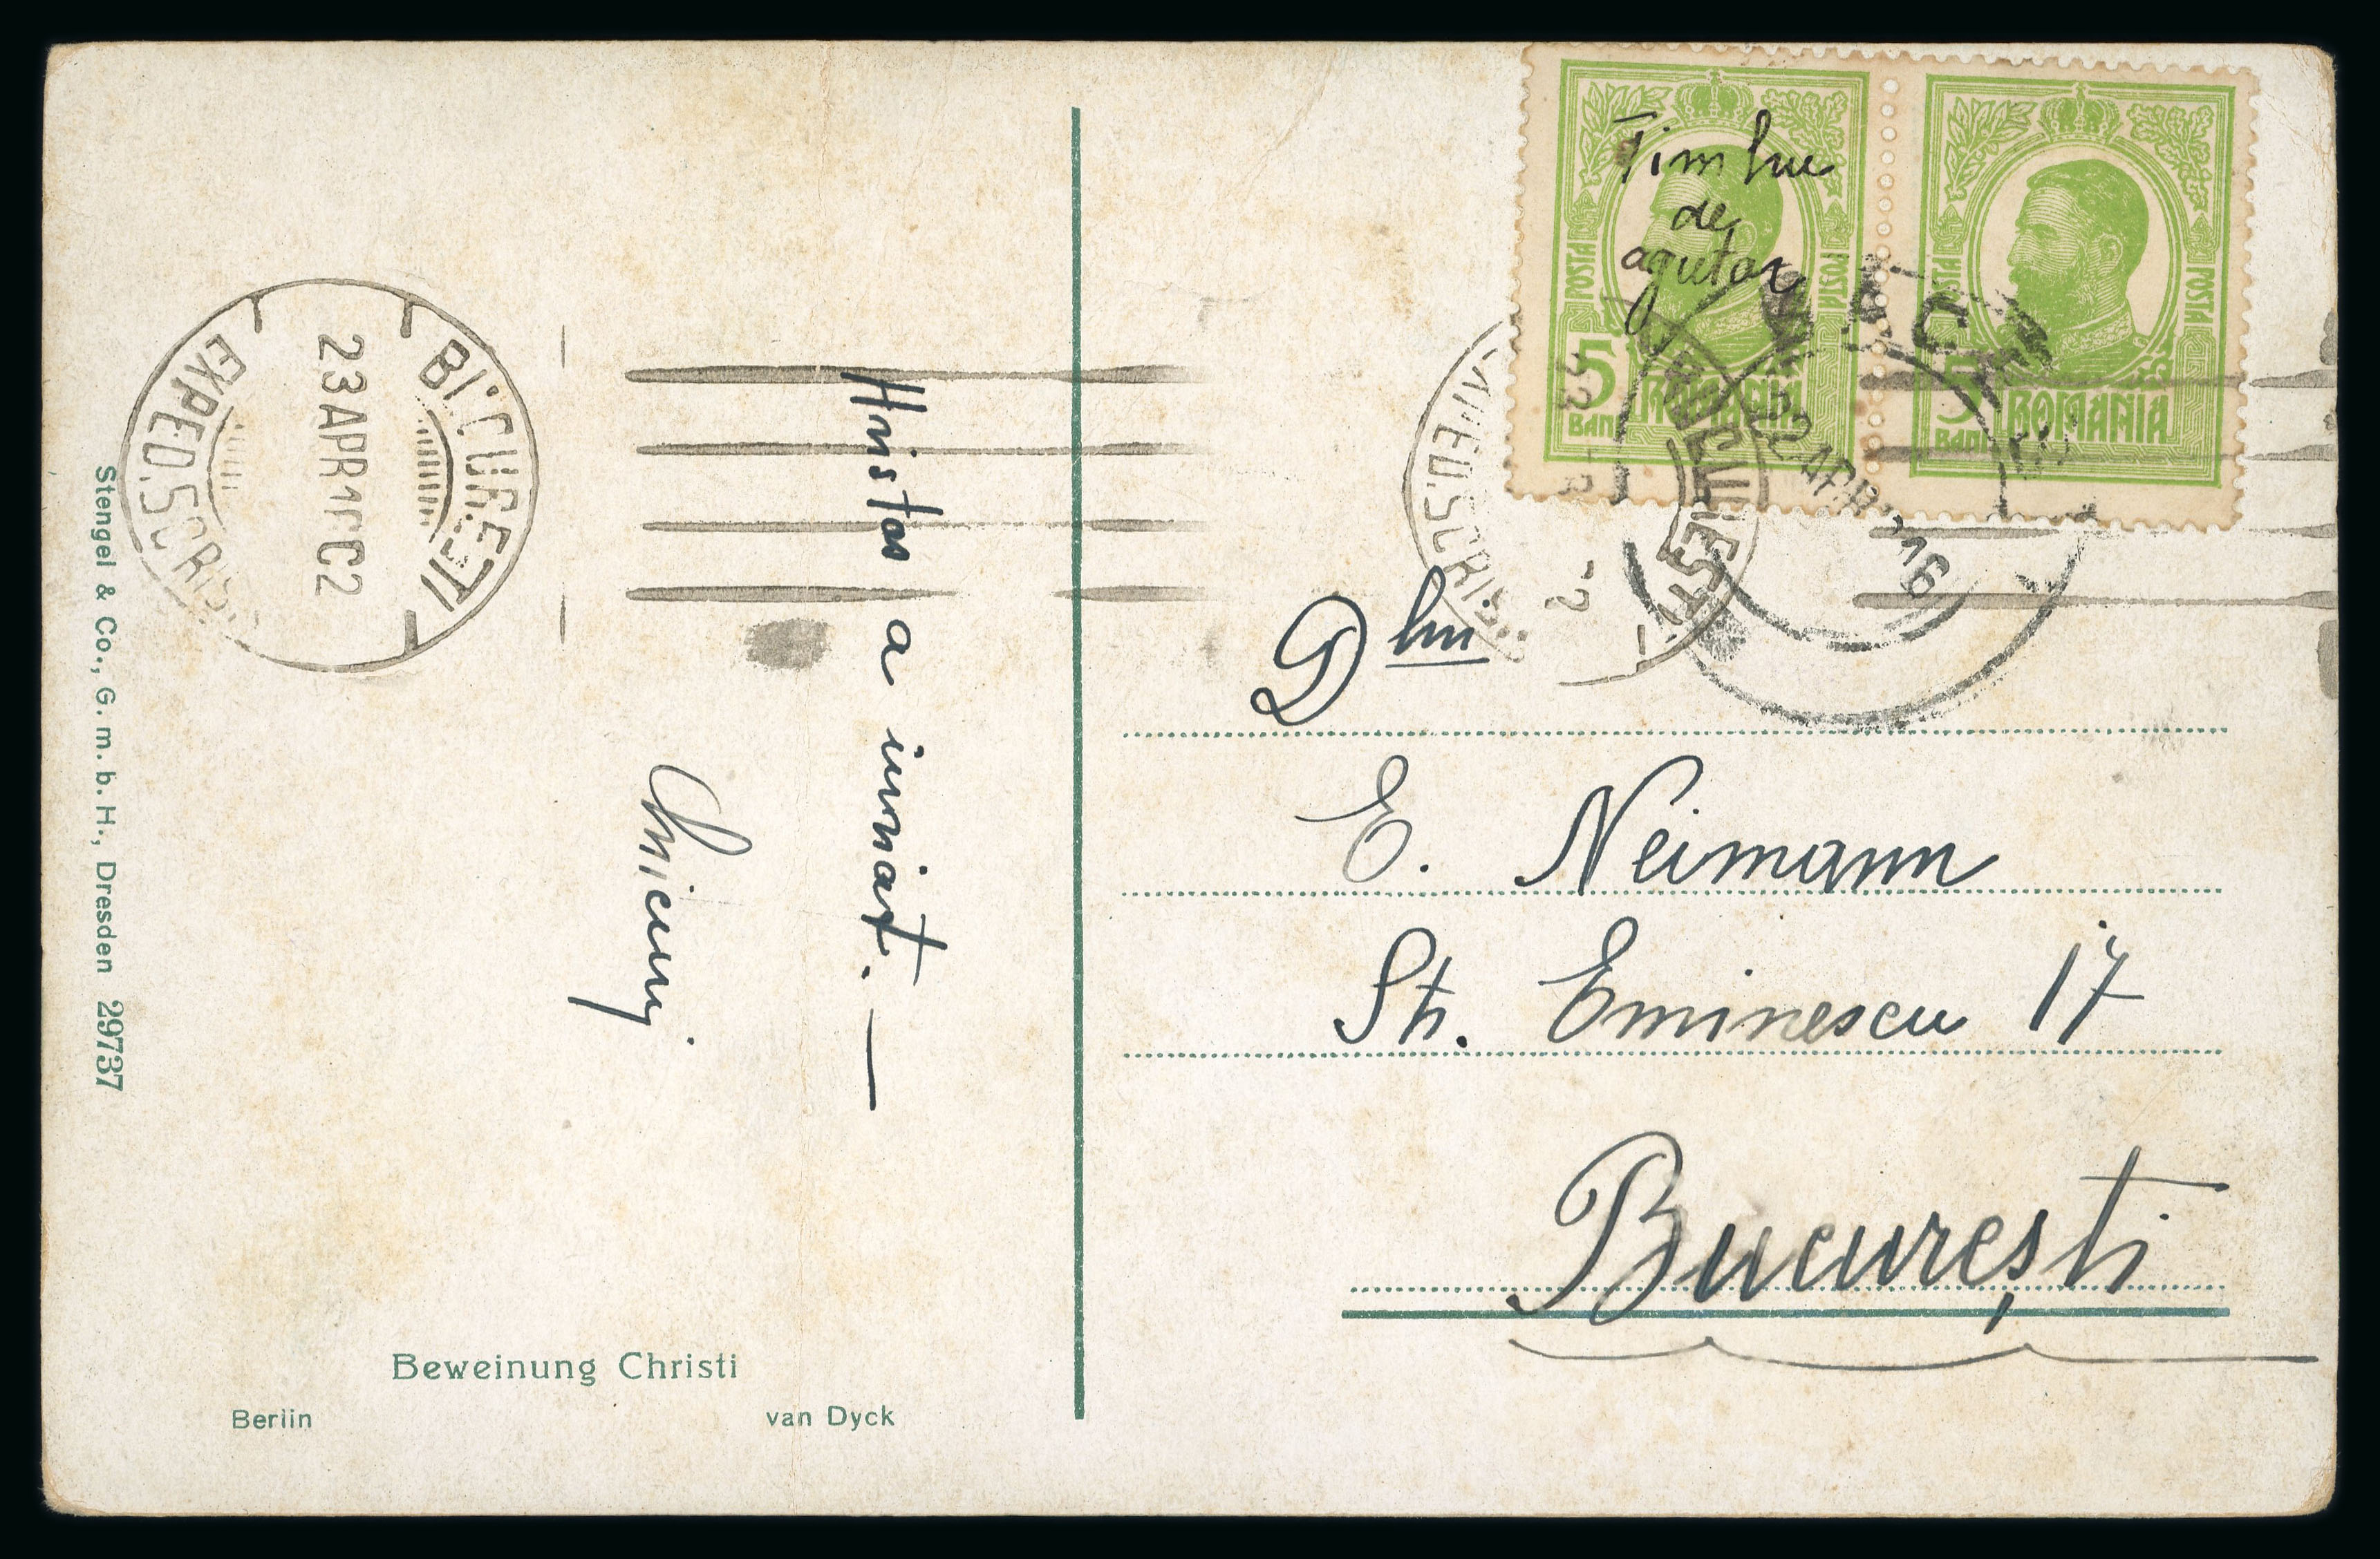 Stengel & Co., G. m. b. H., Dresden 29737
BUCUREȘTI
23 APR 16
EXPED. SCRIS
Hristos a inviat. —
Beweinung Christi
Berlin van Dyck
Timbru
de
ajutor
POSTA POSTA
5 BANI ROMANIA
POSTA POSTA
5 BANI ROMANIA
BUCUREȘTI
EXPED. SCRIS
22 APR 916
Dlui
E. Neimann
Str. Eminescu 17
București